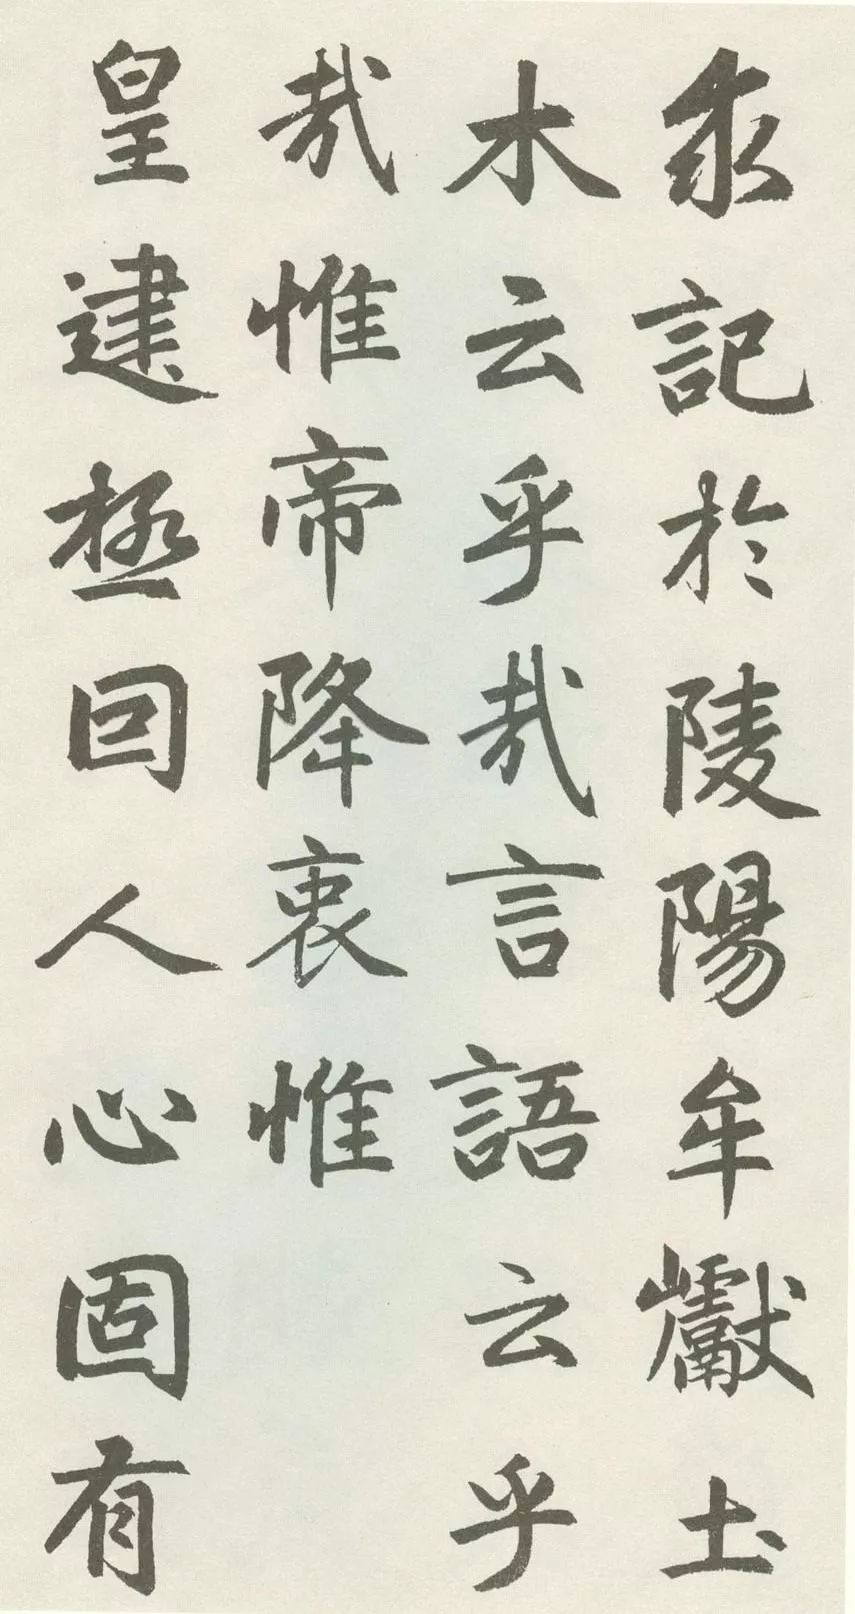 求記於陵陽牟巘土
木云乎哉言語云乎
哉惟帝降衷惟
皇建極囘人心固有